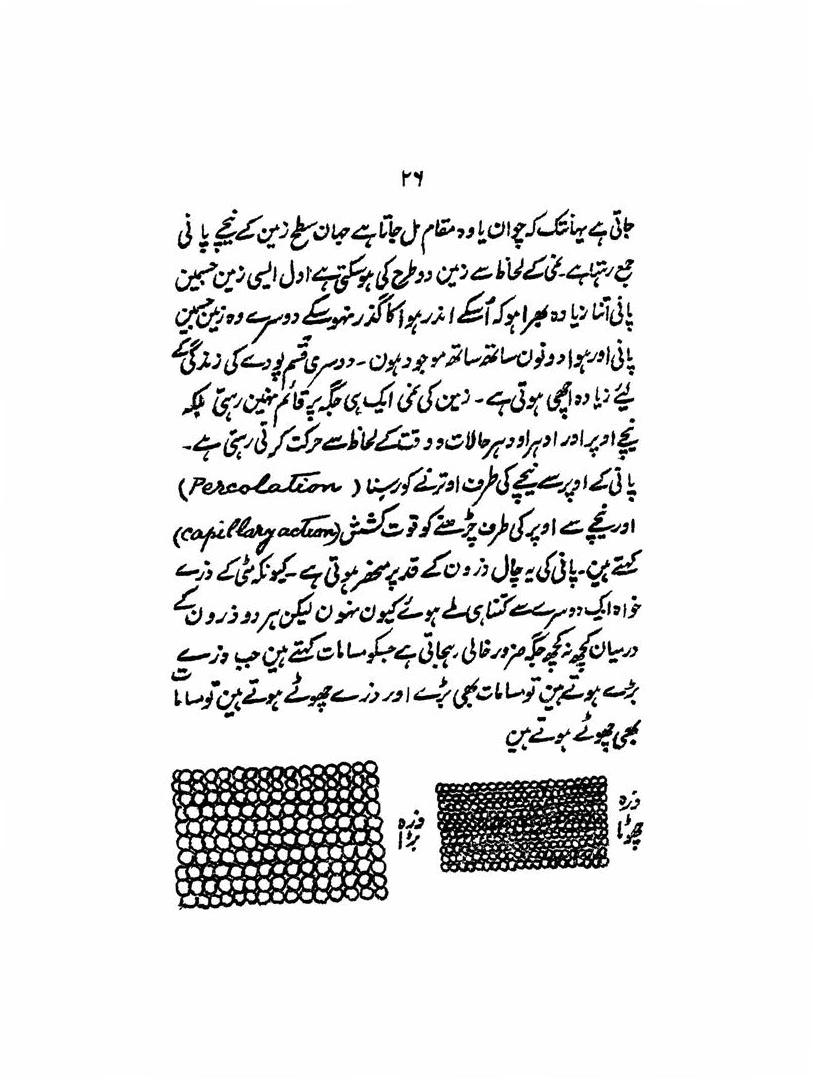 ۲۶
جاتی ہے یہانتک کہ چوان یا وہ مقام مل جاتا ہے جہان سطح زمین کے نیچے پانی
جمع رہتا ہے۔ نمی کے لحاظ سے زمین دو طرح کی ہو سکتی ہے اول ایسی زمین جسمین
پانی اتنا زیادہ بھرا ہو کہ اُسکے اندر ہوا کا گذر نہو سکے دوسرے وہ زمین جسمین
پانی اور ہوا دونون ساتھ ساتھ موجود ہون۔ دوسری قسم پودے کی زندگی کے
لیئے زیادہ اچھی ہوتی ہے۔ زمین کی نمی ایک ہی جگہ پر قائم نہین رہتی بلکہ
نیچے اوپر اور ادہر اودہر حالات و وقت کے لحاظ سے حرکت کرتی رہتی ہے۔
پانی کے اوپر سے نیچے کی طرف اوترنے کو رسنا (Percolation)
اور نیچے سے اوپر کی طرف چڑھنے کو قوت کشش (capillary action)
کہتے ہین۔ پانی کی یہ چال ذرون کے قد پر منحصر ہوتی ہے۔ کیونکہ مٹی کے ذرے
خواہ ایک دوسرے سے کتنا ہی ملے ہوئے کیون نہون لیکن ہر دو ذرون کے
درمیان کچھ نہ کچھ جگہ ضرور خالی رہجاتی ہے جسکو مسامات کہتے ہین جب ذرے
بڑے ہوتے ہین تو مسامات بھی بڑے اور ذرے چھوٹے ہوتے ہین تو مسامات
بھی چھوٹے ہوتے ہین
ذرہ
چھوٹا
ذرہ
بڑا